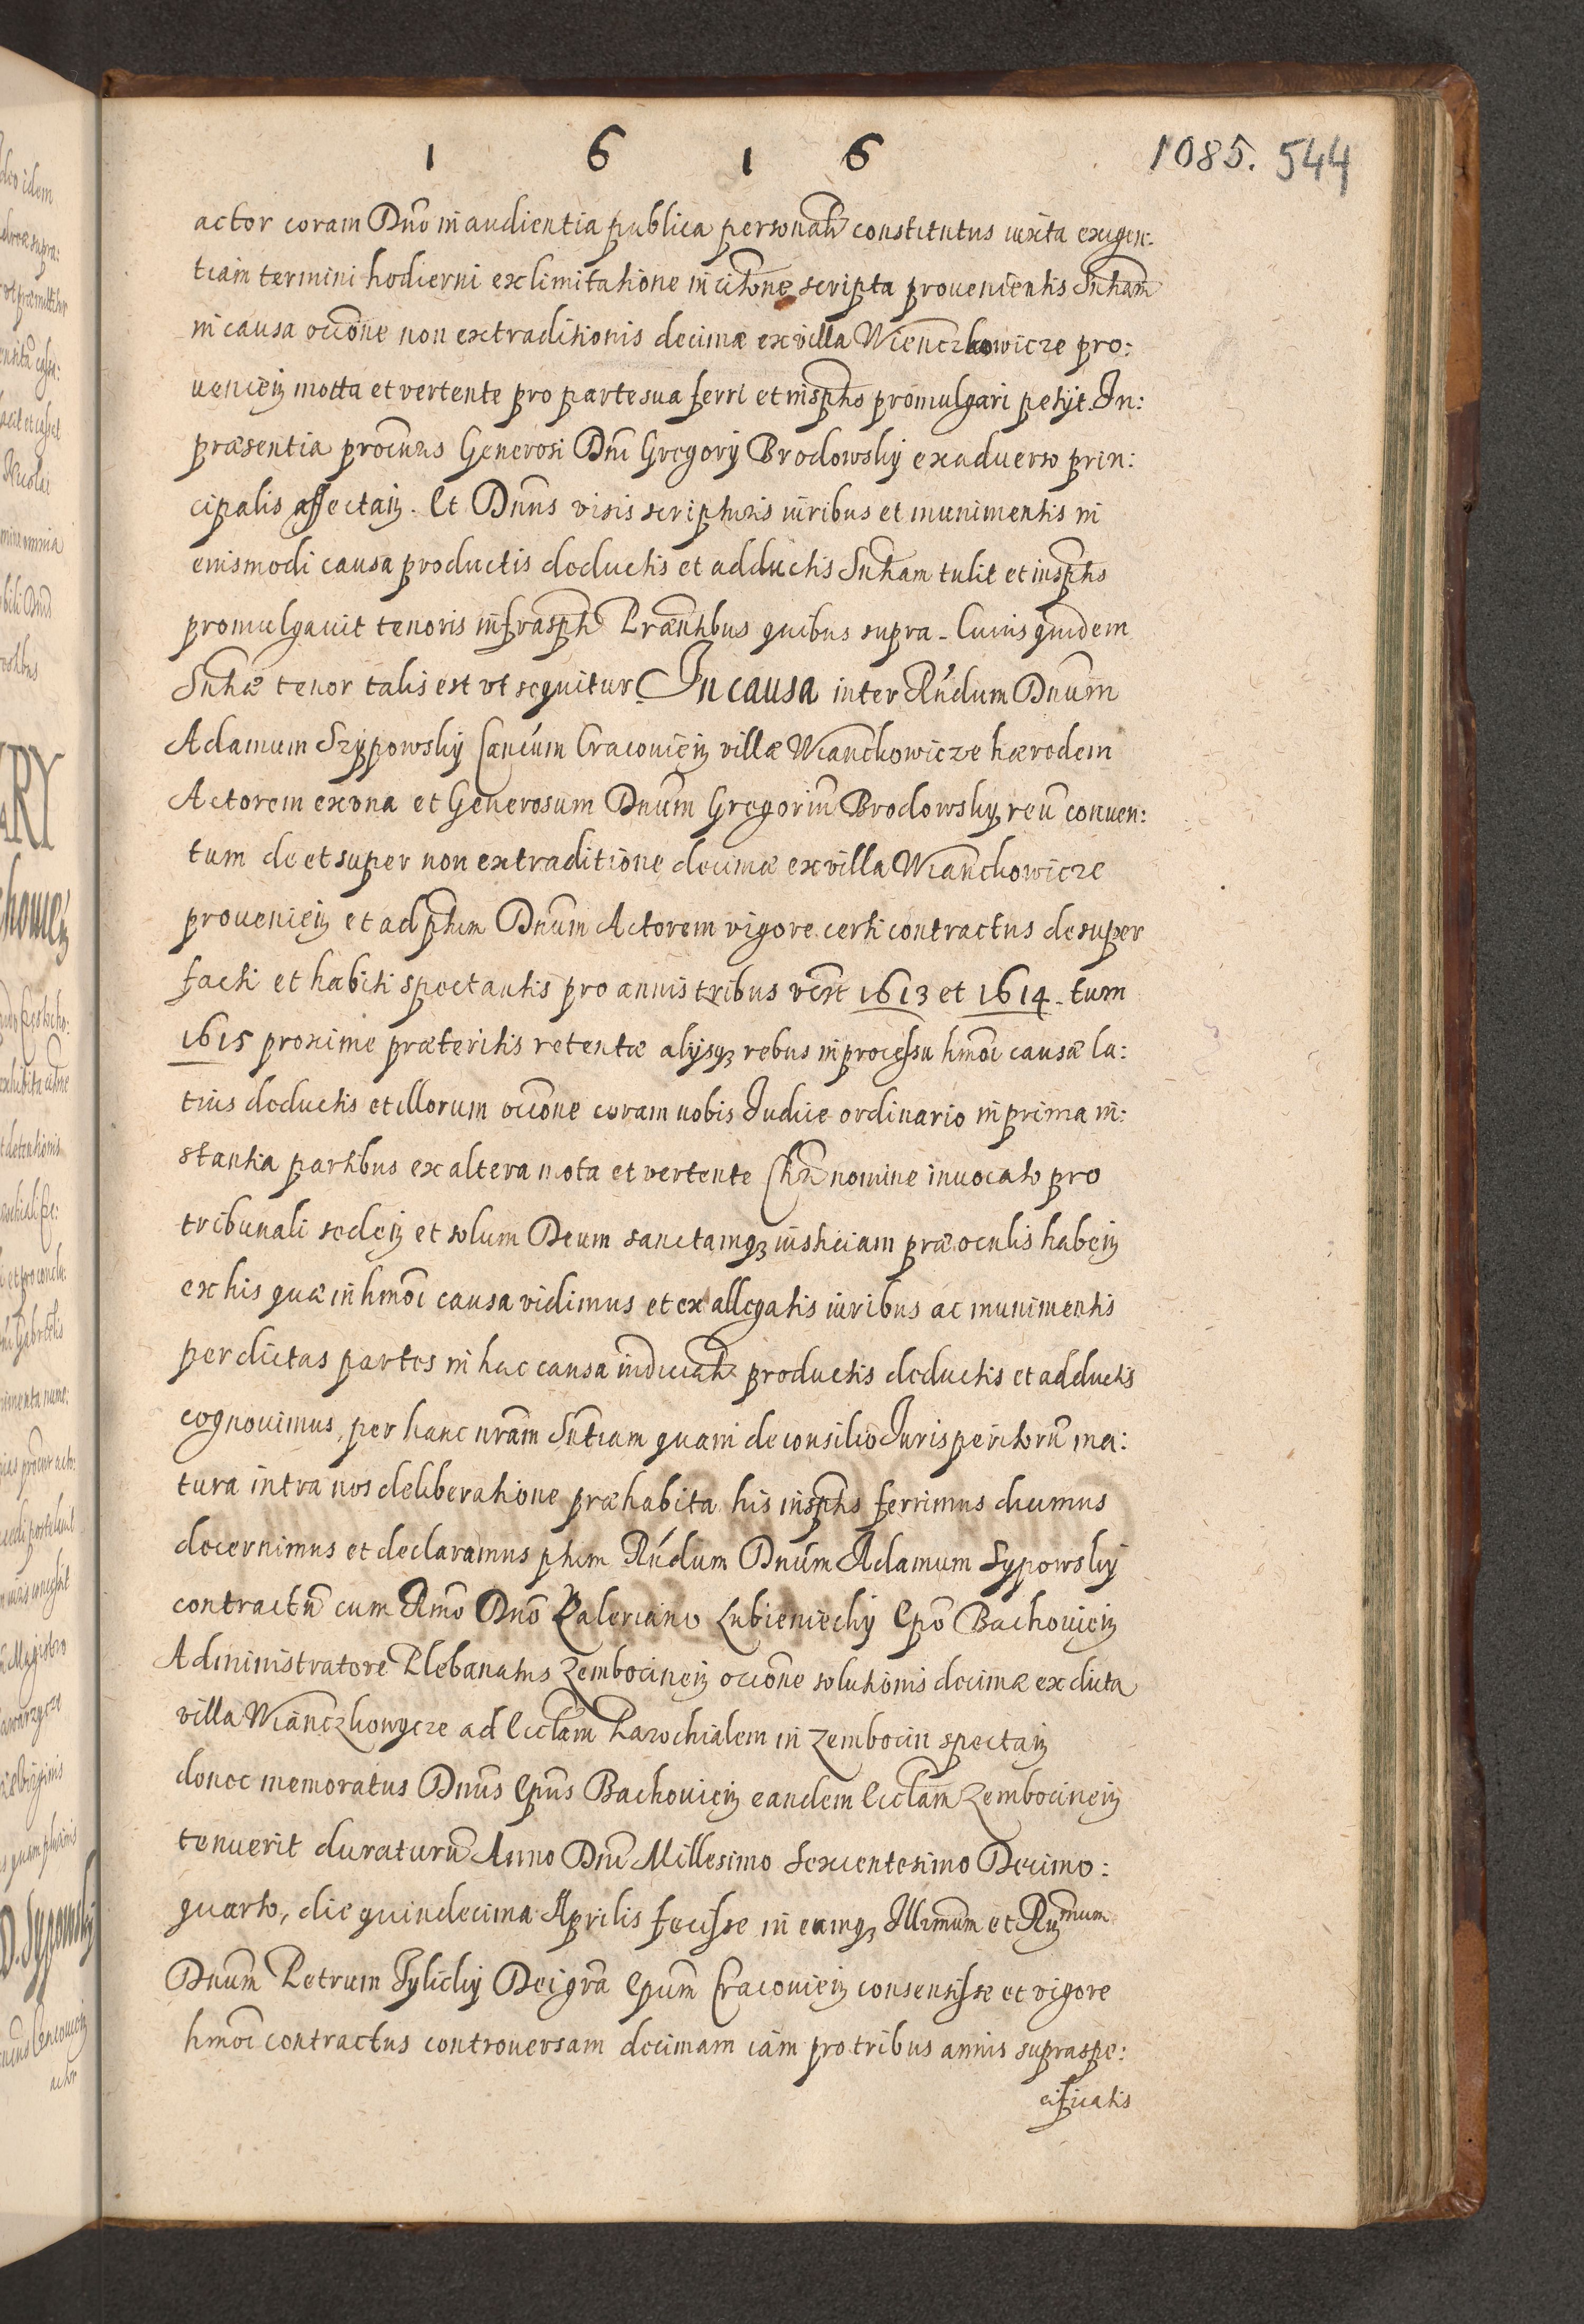 1 6 1 6
1085. 544
actor coram Dno in audientia publica personalr constitutus iuxta exigen-
tiam termini hodierni ex limitatione in citone scripta provenientis Sntiam
in causa occone non extraditionis decimæ ex villa Wienczkowicze pro:
venien motta et vertente pro parte sua ferri et in scptis promulgari petijt. In:
præsentia procuris Generosi Dni Gregorij Brodowskij ex adverso prin:
cipalis affectan. Et Dnus visis scripturis iuribus et munimentis in
eiusmodi causa productis deductis et adductis Sntiam tulit et in scptis
promulgavit tenoris infrascpti Præntibus quibus supra. Cuius quidem
Sntiæ tenor talis est ut sequitur. In causa inter Rndum Dnum
Adamum Szypowskij Cancum Cracovien villæ Wianckowicze hæredem
Actorem ex una et Generosum Dnum Gregoriu Brodowskij reu conven:
tum de et super non extraditione decimæ ex villa Wianckowicze
provenien et ad pttum Dnum Actorem vigore certi contractus desuper
facti et habiti spectantis pro annis tribus vzt 1613 et 1614. tum
1615 proxime præteritis retentæ alijsq rebus in processu hmoi causæ la:
tius deductis et illorum occone coram nobis Iudice ordinario in prima in:
stantia partibus ex altera mota et vertente Chri nomine invocato pro
tribunali seden et solum Deum sanctamq iustitiam præ oculis haben
ex his quæ in hmoi causa vidimus et ex allegatis iuribus ac munimentis
per dictas partes in hac causa iudicialr productis deductis et adductis
cognovimus, per hanc nram Sntiam quam de consilio Iurisperitoru ma:
tura intra nos deliberatione præhabita his in scptis ferrimus dicimus
decernimus et declaramus pttum Rndum Dnum Adamum Sypowskij
contractu cum Rmo Dno Valeriano Lubienieckij Epo Bachovien
Administratore Plebanatus Zembocinen occone solutionis decimæ ex dicta
villa Wianczkowycze ad Ecclam Parochialem in Zembocin spectan
donec memoratus Dnus Epus Bachovien eandem Ecclam Zembocinen
tenuerit duraturu Anno Dni Millesimo Sexcentesimo Decimo:
quarto, die quindecima Aprilis fecisse in eumq Illrmum et Rndmum
Dnum Petrum Tylickij Dei gra Epum Cracovien consensisse et vigore
hmoi contractus controversam decimam iam pro tribus annis supraspe:
cificatis